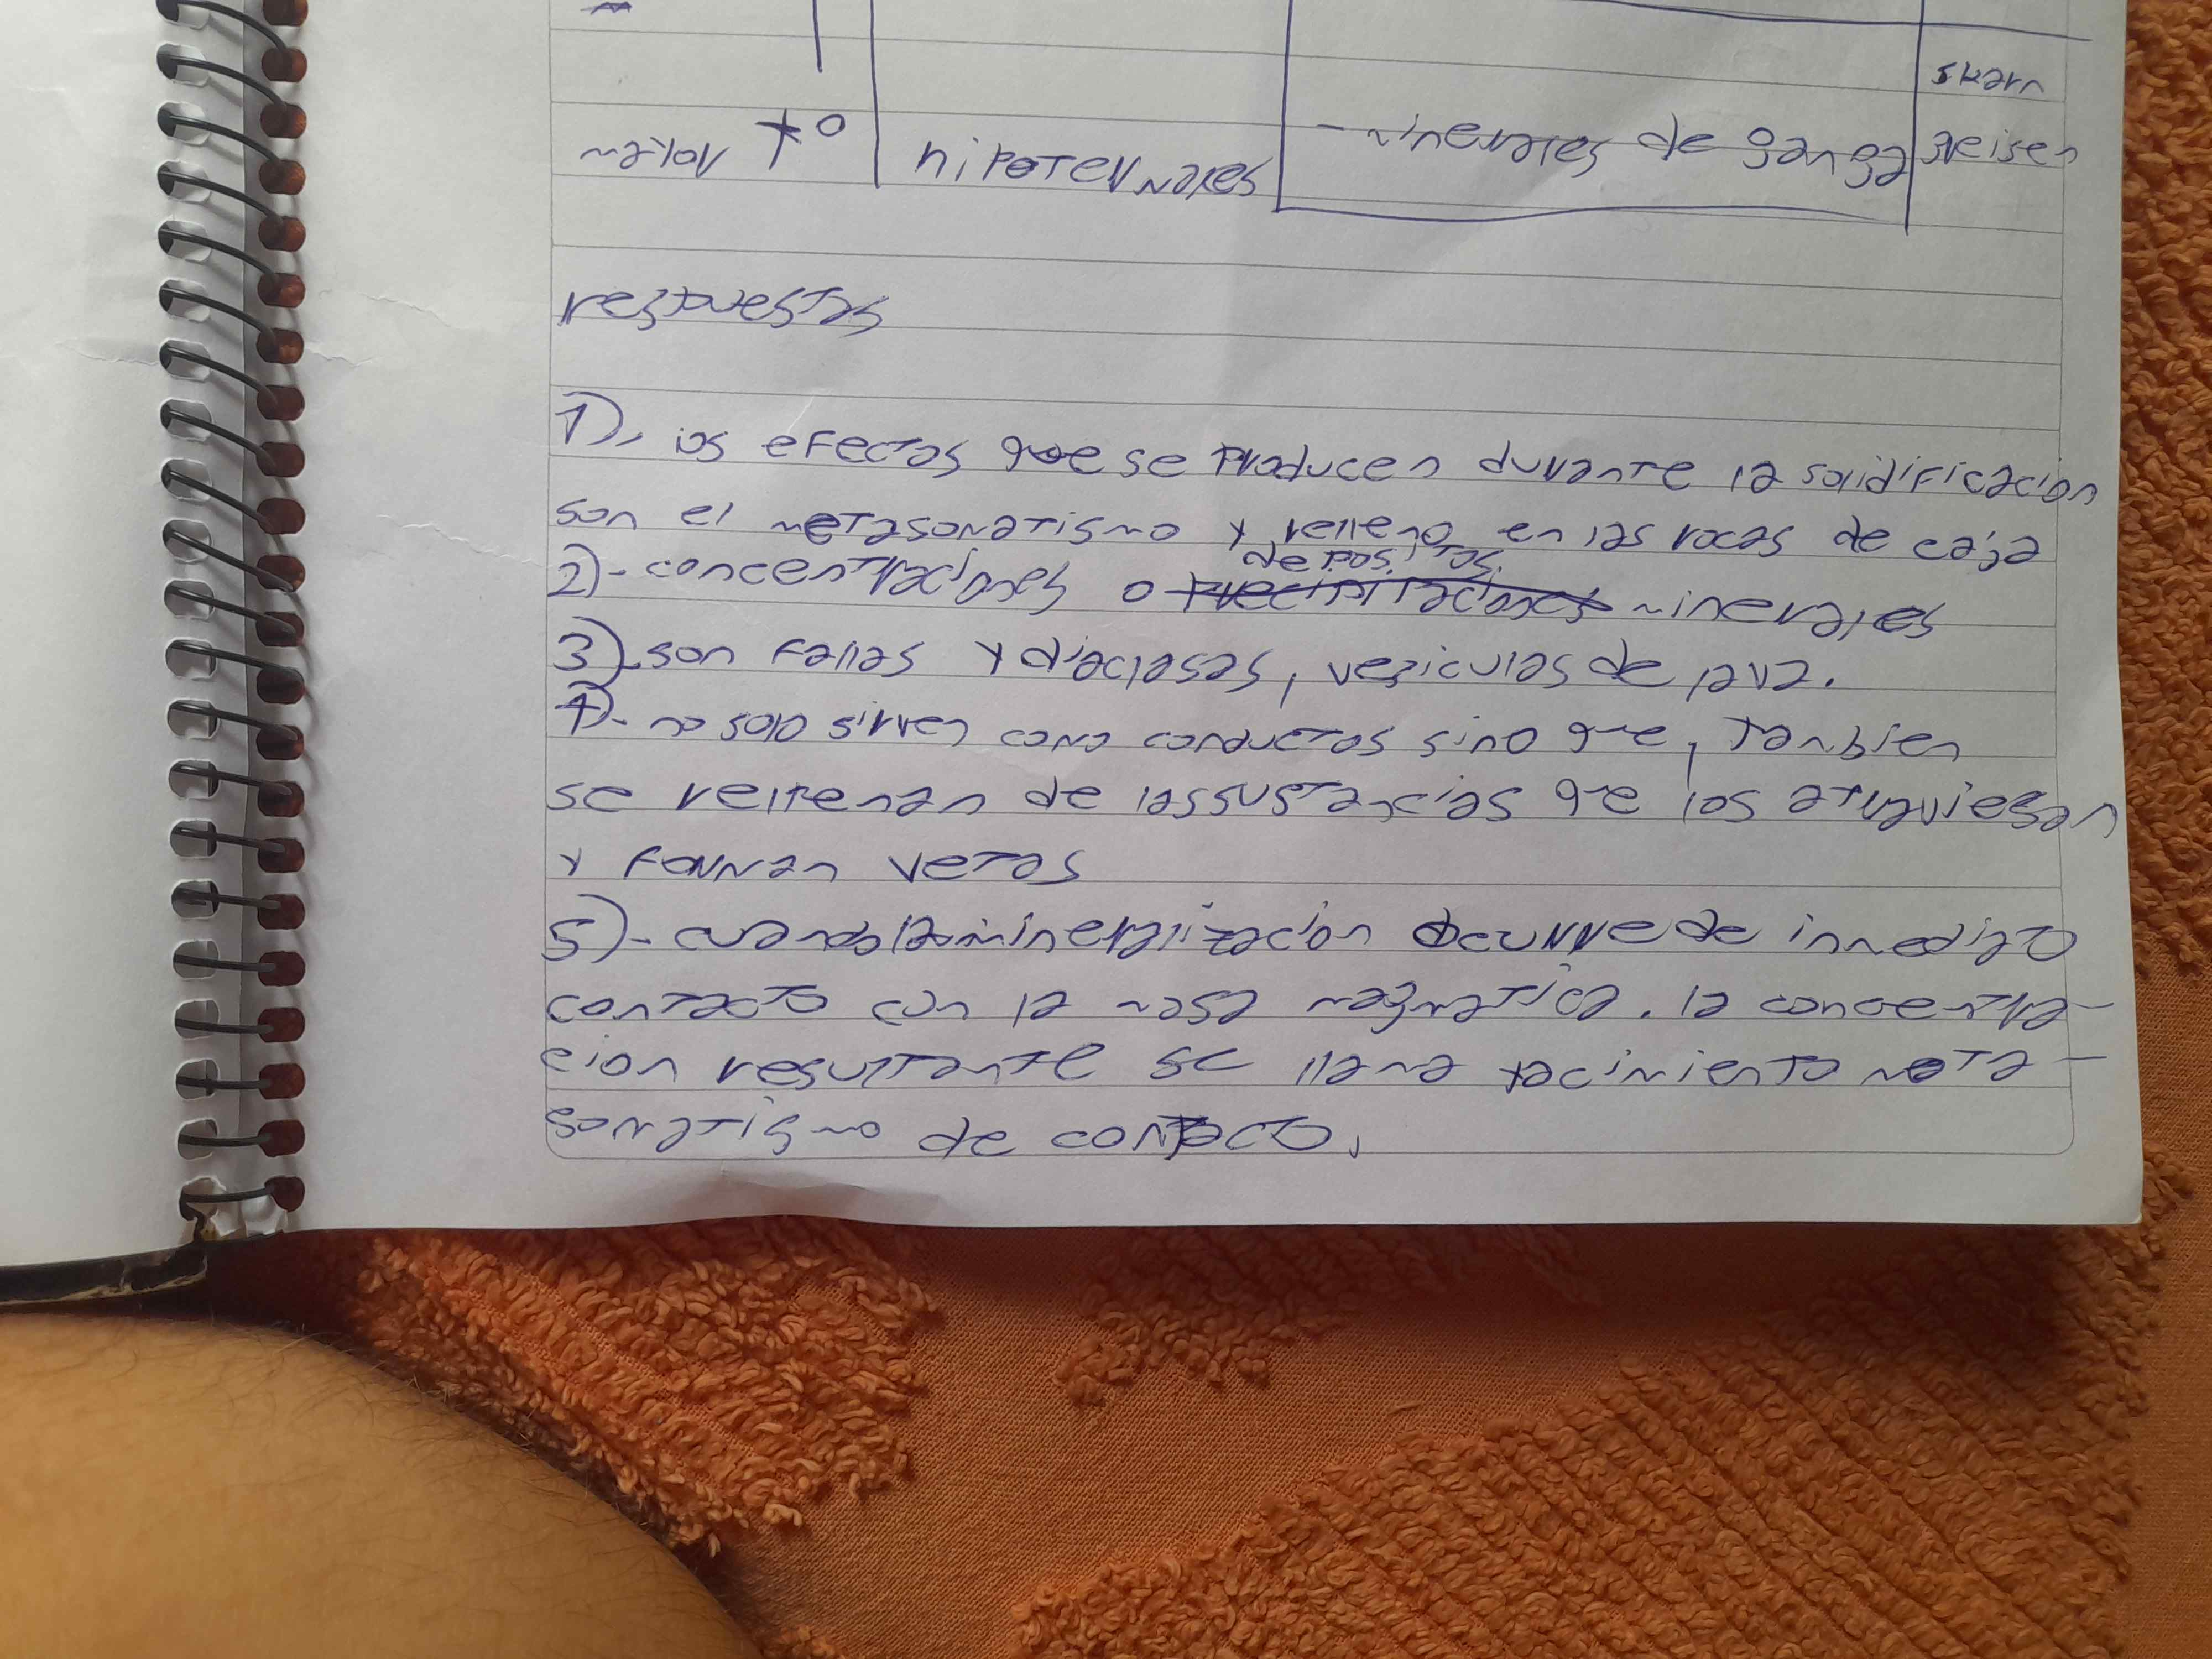 skarn
maYor t° hipotermales - minerales de ganga greisen
respuestas
1)- los efectos que se producen durante la solidificacion
son el metasomatismo y relleno en las rocas de caja
depositos
2)- concentraciones o precipitaciones minerales
3)- son fallas y diaclasas, vesiculas de lava.
4)- no solo sirven como conductos sino que, tambien
se rellenan de las sustancias que los atraviesan
y forman vetas
5)- cuando la mineralizacion ocurre de inmediato
contacto con la masa magmatica. la concentra-
cion resultante se llama yacimiento meta-
somatismo de contacto.